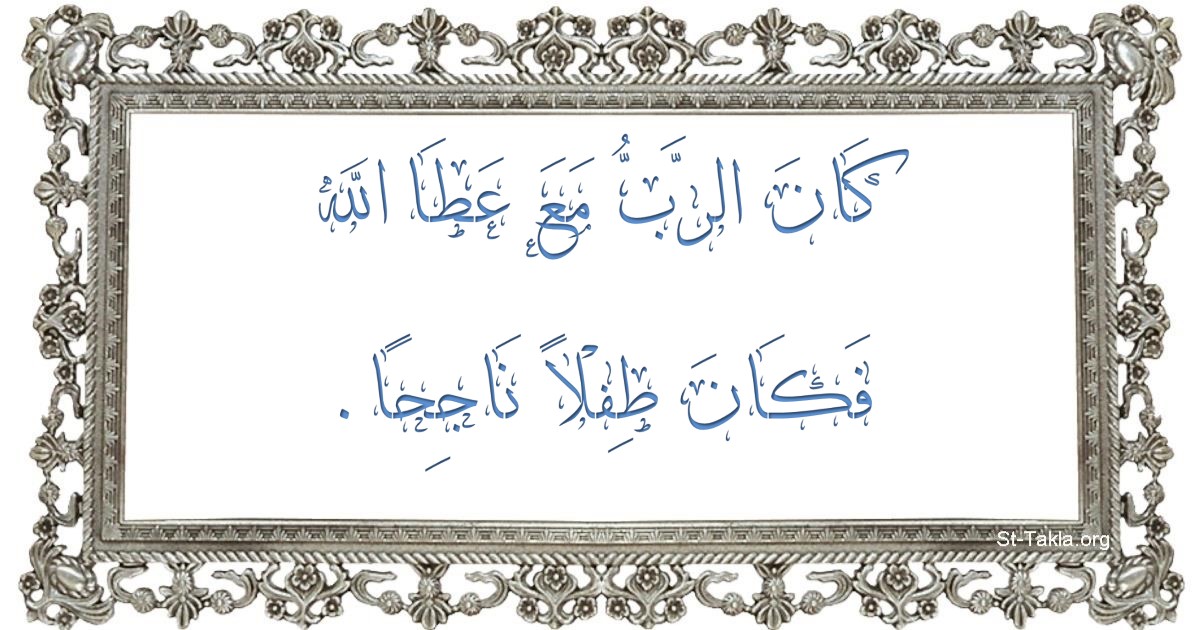 كَانَ الرَّبُّ مَعَ عَطَا اللَّهْ
فَكَانَ طِفْلاً نَاجِحاً .
St-Takla.org